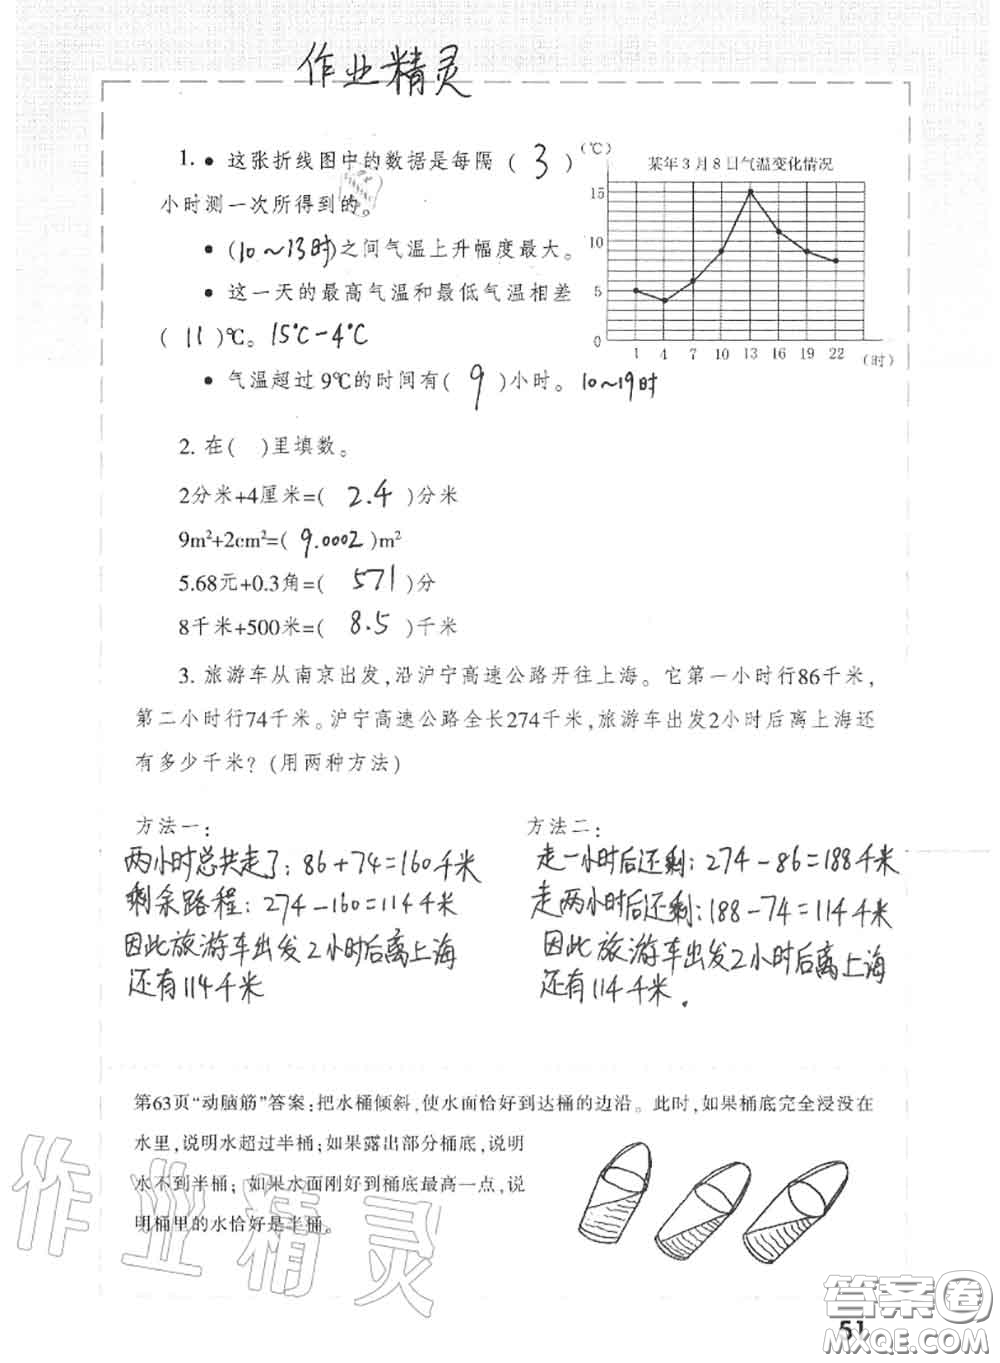 作业精灵
1. • 这张折线图中的数据是每隔（ 3 ）
小时测一次所得到的。
• (10～13时)之间气温上升幅度最大。
• 这一天的最高气温和最低气温相差
( 11 )℃。15℃-4℃
• 气温超过9℃的时间有( 9 )小时。10～19时
(℃)
某年3月8日气温变化情况
15
10
5
0
1 4 7 10 13 16 19 22 (时)
2. 在( )里填数。
2分米+4厘米=( 2.4 )分米
9m²+2cm²=( 9.0002 )m²
5.68元+0.3角=( 571 )分
8千米+500米=( 8.5 )千米
3. 旅游车从南京出发,沿沪宁高速公路开往上海。它第一小时行86千米,
第二小时行74千米。沪宁高速公路全长274千米,旅游车出发2小时后离上海还
有多少千米?(用两种方法)
方法一:
两小时总共走了: 86+74=160千米
剩余路程: 274-160=114千米
因此旅游车出发2小时后离上海
还有114千米
方法二:
走一小时后还剩: 274-86=188千米
走两小时后还剩: 188-74=114千米
因此旅游车出发2小时后离上海
还有114千米.
第63页“动脑筋”答案:把水桶倾斜,使水面恰好到达桶的边沿。此时,如果桶底完全浸没在
水里,说明水超过半桶;如果露出部分桶底,说明
水不到半桶;如果水面刚好到桶底最高一点,说
明桶里的水恰好是半桶。
作业精灵
答案圈
MXQE.COM
51